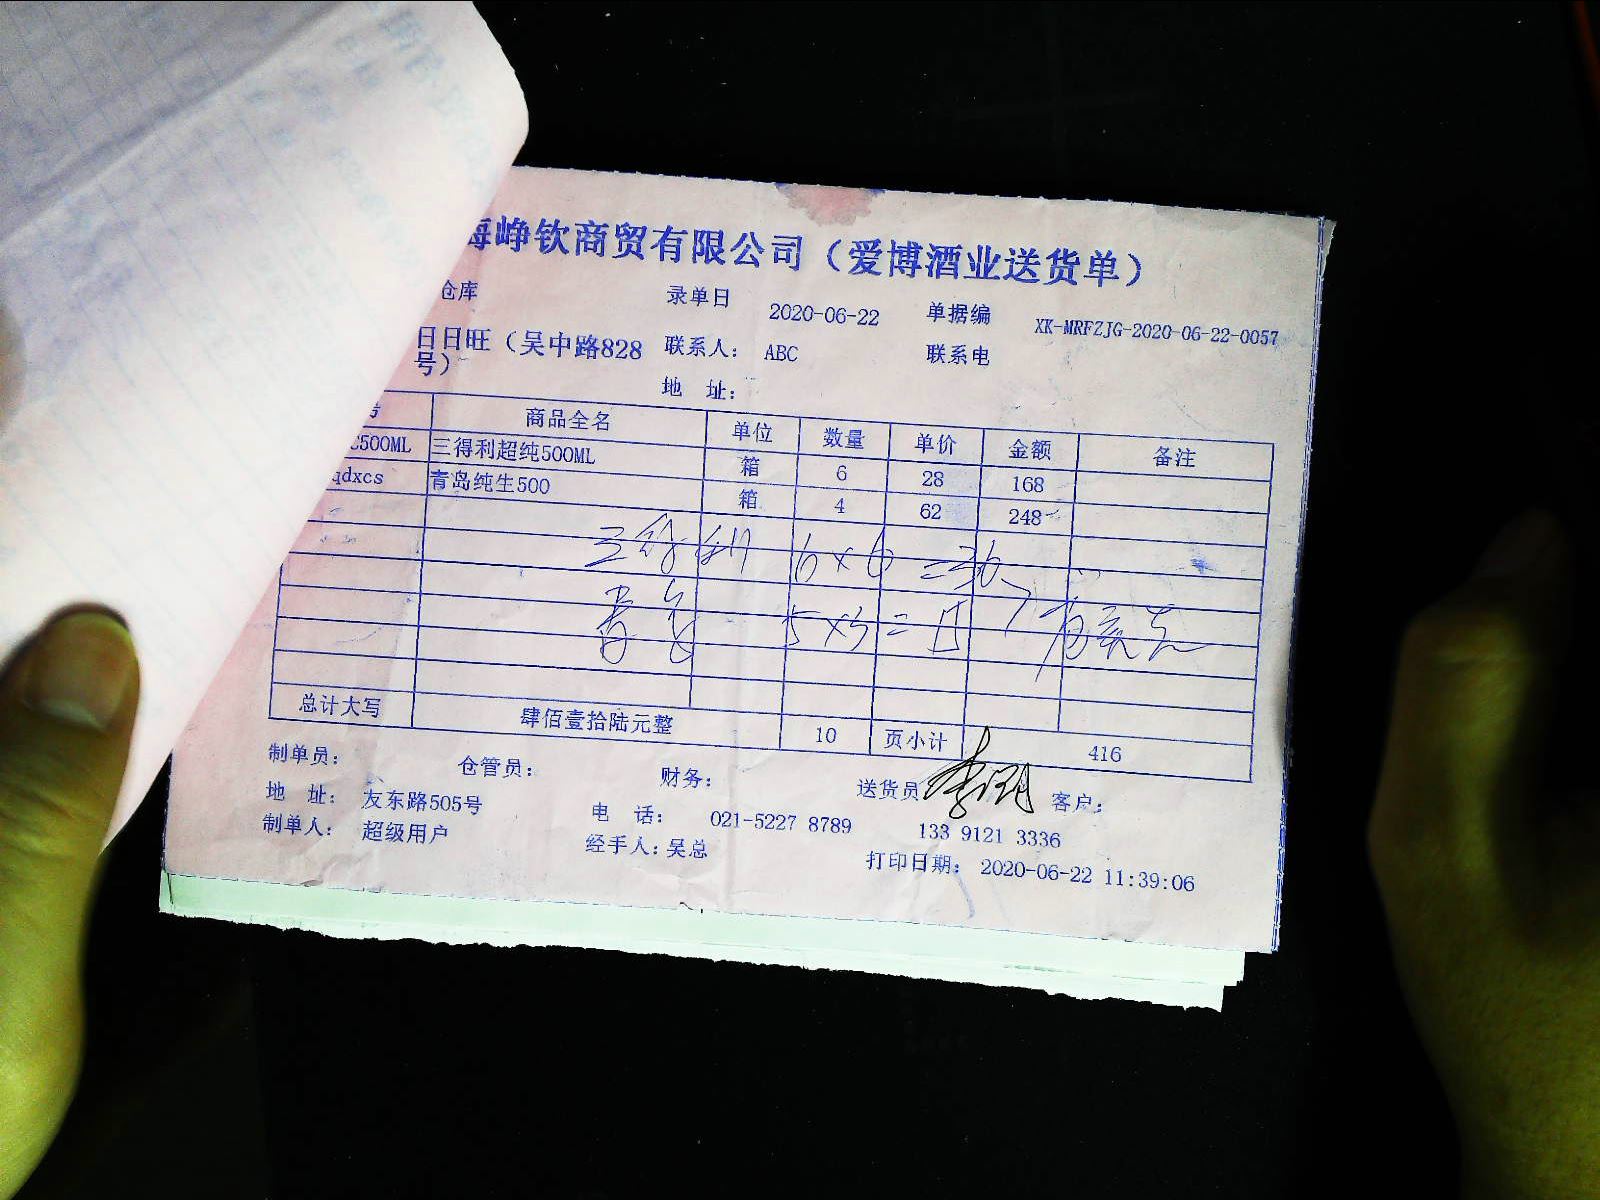 海峥钦商贸有限公司（爱博酒业送货单）
仓库 录单日 2020-06-22 单据编 XK-MRFZJG-2020-06-22-0057
日日旺（吴中路828号） 联系人： ABC 联系电
地 址：
号 商品全名 单位 数量 单价 金额 备注
C500ML 三得利超纯500ML 箱 6 28 168
qdxcs 青岛纯生500 箱 4 62 248
三得利 6×6=36
青岛 5×3=15
总计大写 肆佰壹拾陆元整 10 页小计 416
制单员： 仓管员： 财务： 送货员 客户：
地 址： 友东路505号 电 话： 021-5227 8789 133 9121 3336
制单人： 超级用户 经手人：吴总 打印日期： 2020-06-22 11:39:06